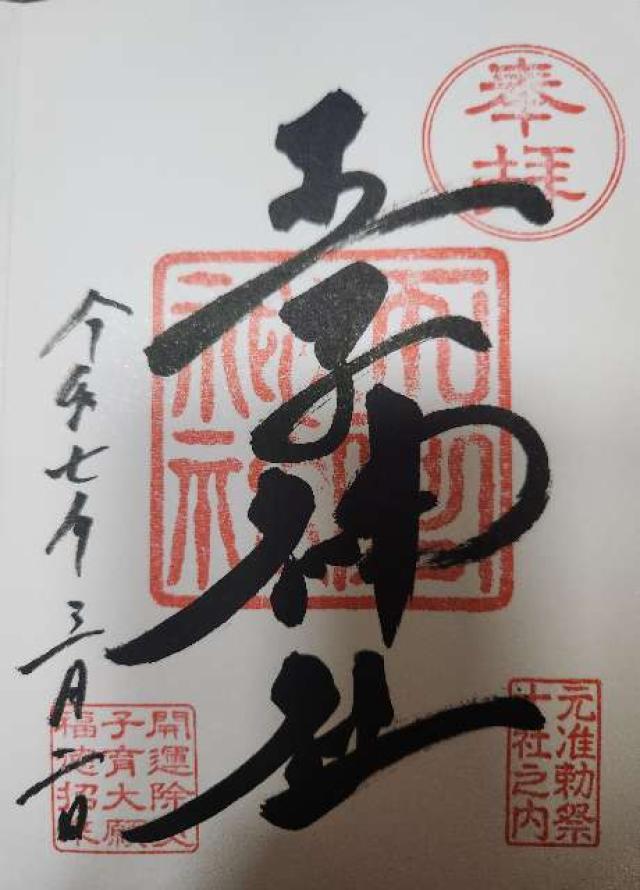 奉拝
王子神社
元准勅祭
十社之内
令和七年三月二日
開運除災
子育大願
福徳招来